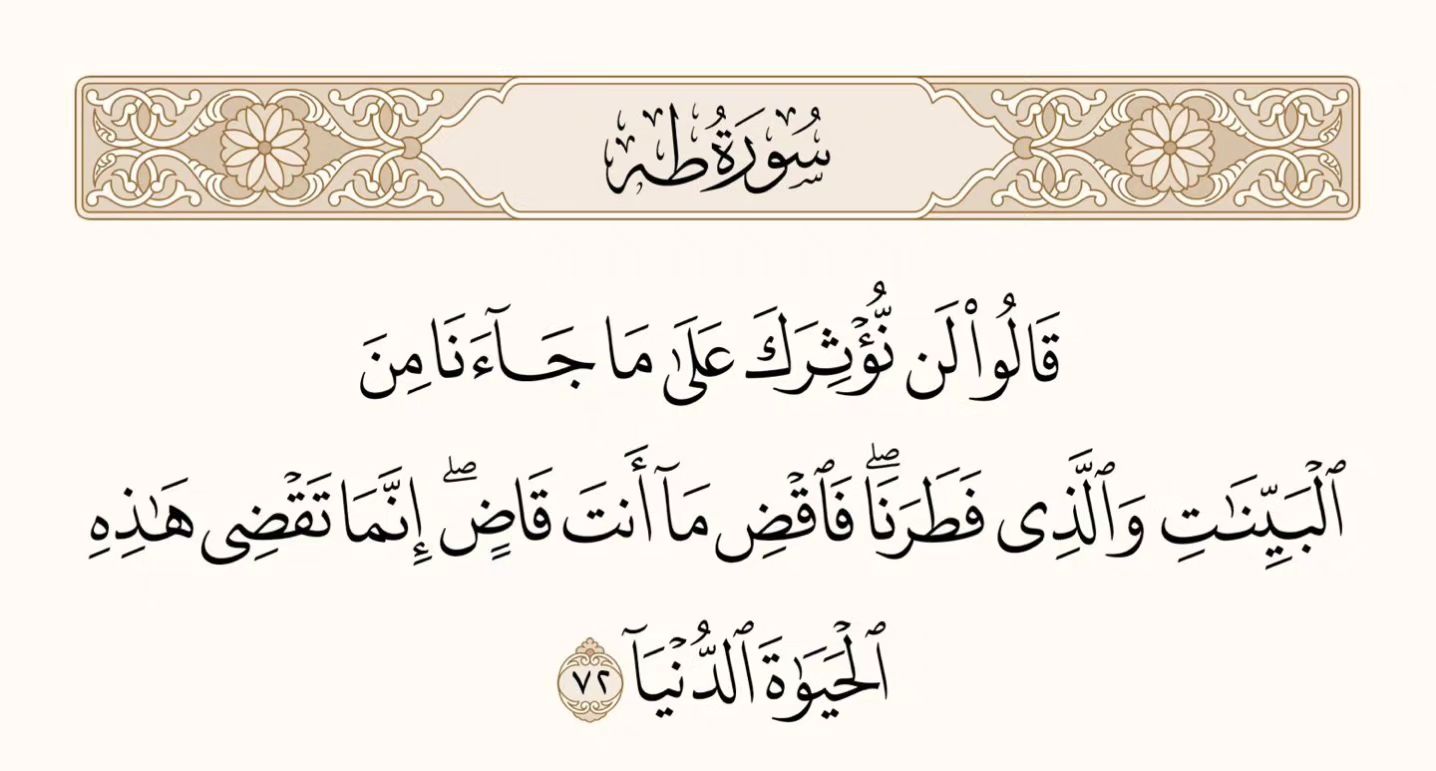 سُورَةُ طه
قَالُوا۟ لَن نُّؤْثِرَكَ عَلَىٰ مَا جَآءَنَا مِنَ
ٱلْبَيِّنَـٰتِ وَٱلَّذِى فَطَرَنَا ۖ فَٱقْضِ مَآ أَنتَ قَاضٍ ۖ إِنَّمَا تَقْضِى هَـٰذِهِ
ٱلْحَيَوٰةَ ٱلدُّنْيَآ ٧٢